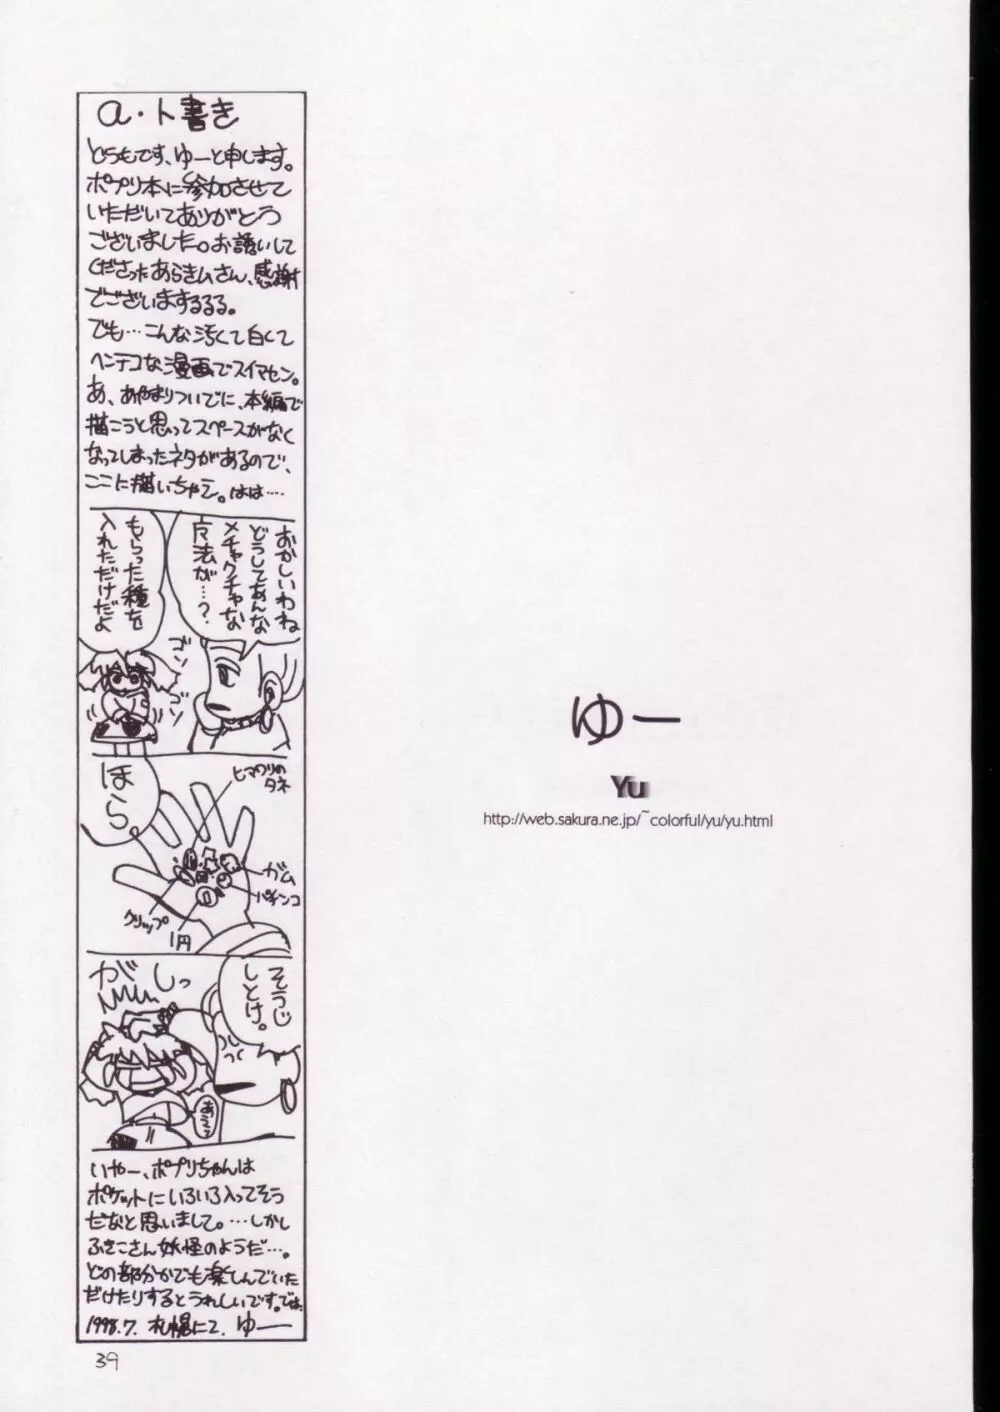 a・ト書き
どうもです、ゆーと申します。
ポプリ本に参加させて
いただいてありがとう
ございました。お誘いして
くださったあらきムさん、感謝
でございまするるる。
でも…こんな汚くて白くて
ヘンテコな漫画でスイマセン。
あ、あやまりついでに、本編で
描こうと思ってスペースがなく
なってしまったネタがあるので、
ここに描いちゃえ。はは‥‥
おかしいわね
どうしてあんな
メチャクチャな
魔法が…?
もらった種を
入れただけだよ
ゴソ
ゴソ
ほら。
ヒマワリの
タネ
ガム
パチンコ
クリップ
1円
そうじ
しとけ。
がしっ
いやー、ポプリちゃんは
ポケットにいろいろ入ってそう
だなと思いまして。…しかし
ふきこさん妖怪のようだ…。
どの部分かでも楽しんでいた
だけたりするとうれしいです。では、
1998.7. 札幌にて. ゆー
39
ゆー
Yu
http://web.sakura.ne.jp/~colorful/yu/yu.html